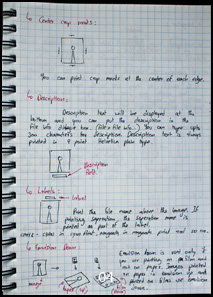 ↳ Center crop marks:
You can print crop marks at the center of each edge.
↳ Description:
Description text will be displayed at the
bottom and you can put the description in the
file info dialogue box (file > file info). You can type upto
300 characters how description. Description text is always
printed in 9 point Helvetica plain type.
Description
Text.
↳ Labels:
Label
Print the file name above the image. If
printing separation, the separation name is
printed as part of the label.
on cyan plate, magenta in magenta print and so on.
↳ Emulsion down
Emulsion down is used only if
you are printing on film and
not on paper. Images printed
on paper is emulsion up and
printed on films use emulsion
down.
image
paper
film